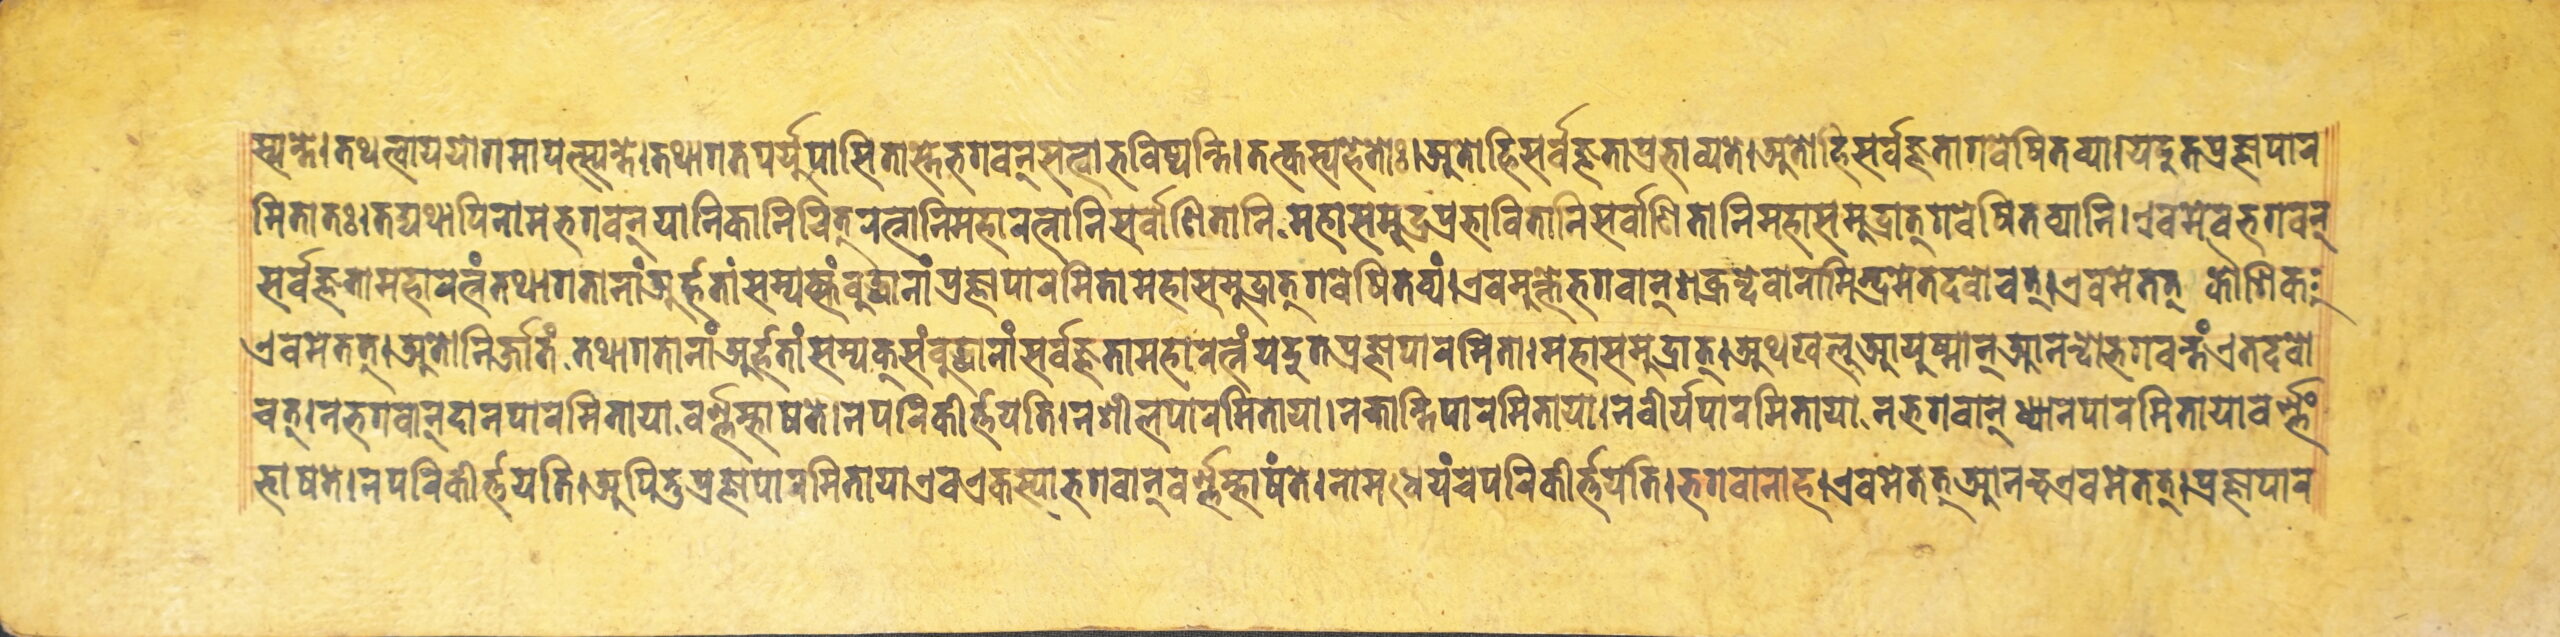 स्यन्ते।तथत्वाययोगमापत्स्यन्ते।तथागतपर्युपासितास्तेभगवन्सत्वाभविष्यन्ति।तत्कस्यहेतोः।अतोहिसर्वज्ञताप्रभाव्यते।अतोहिसर्वज्ञतागवेषितव्या।यदुतप्रज्ञापार
मितातः।तद्यथापिनामभगवन्यानिकानिचित्रत्नानिमहारत्नानिसर्वाणितानिमहासमुद्रप्रभावितानिसर्वाणितानिमहासमुद्रात्गवेषितव्यानि।एवमेवभगवन्
सर्वज्ञतामहारत्नंतथागतानांअर्हतांसम्यक्संबुद्धानांप्रज्ञापारमितामहासमुद्रात्गवेषितव्यं।एवमुक्तेभगवान्शक्रन्देवानामिन्द्रमेतदवोचत्।एवमेतत् कौशिक
एवमेतत्।अतोनिर्जातंतथागतानांअर्हतांसम्यक्संबुद्धानांसर्वज्ञतामहारत्नंयदुतप्रज्ञापारमिता।महासमुद्रात्।अथखलुआयुष्मान्आनन्दोभगवन्तंएतदवो
चत्।नभगवान्दानपारमितायावर्ण्णम्भाषते।नपरिकीर्त्तयति।नशीलपारमिताया।नक्षान्तिपारमिताया।नवीर्यपारमितायानभगवान्ध्यानपारमितायावर्ण्णं
भाषते।नपरिकीर्त्तयति।अपितुप्रज्ञापारमितायाएवएकस्याभगवान्वर्ण्णम्भाषंते।नामधेयंचपरिकीर्त्तयति।भगवानाह।एवमेतत्आनन्दएवमेतत्।प्रज्ञापार